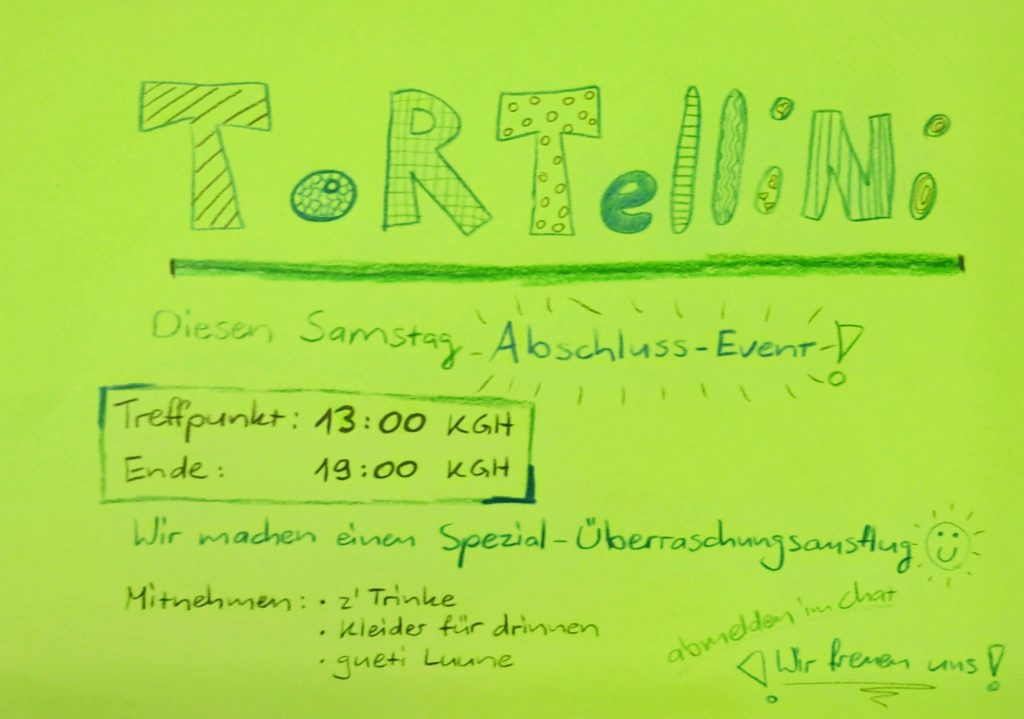 ToRTelliNi
Diesen Samstag - Abschluss-Event!
Treffpunkt: 13:00 KGH
Ende: 19:00 KGH
Wir machen einen Spezial-Überraschungsausflug
Mitnehmen: • z'Trinke
• Kleider für drinnen
• gueti Luune
abmelden im Chat
¡Wir freuen uns!